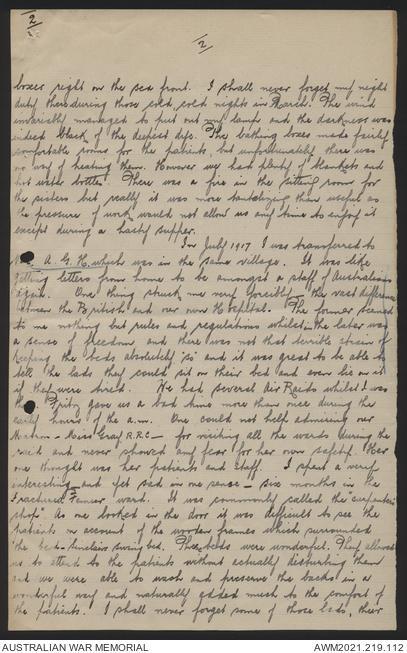 2
2
boxes right on the sea front. I shall never forget my night
duty there during those cold, cold nights in March. The wind
invariably managed to put out my lamp and the darkness was
indeed black of the deepest dye. The bathing boxes made fairly
comfortable rooms for the patients, but unfortunately there was
no way of heating them. However we had plenty of blankets and
hot water bottles. There was a fire in the sitting room for
the sisters but really it was more tantalizing than useful as
the pressure of work would not allow us any time to enjoy it
except during a hasty supper.
In July 1917 I was transferred to
A. G. H. which was in the same village. It was like
getting letters from home to be amongst a staff of Australians
again. One thing struck me very forcibly - the vast difference
between the British and our own Hospital. The former seemed
to me nothing but rules and regulations whilst in the latter was
a sense of freedom and there was not that terrible strain of
keeping the beds absolutely "so" and it was great to be able to
tell the lads they could sit on their bed and even lie on it
if they were tired. We had several Air Raids whilst I was
Fritz gave us a bad time more than once during the
early hours of the a.m. One could not help admiring our
Matron - Miss Gray R.R.C - for visiting all the wards during the
raid and never showed any fear for her own safety. Her
one thought was her patients and staff. I spent a very
interesting and yet sad in one sense - six months in the
Fractured Femur ward. It was commonly called the "carpenters
shop" as we looked in the door it was difficult to see the
patients on account of the wooden frames which surrounded
the bed - Sinclair swing bed. These beds were wonderful. They allowed
us to attend to the patients without actually disturbing them
and we were able to wash and preserve the backs in a
wonderful way and naturally added much to the comfort of
the patients. I shall never forget some of those lads, their
AUSTRALIAN WAR MEMORIAL
AWM2021.219.112